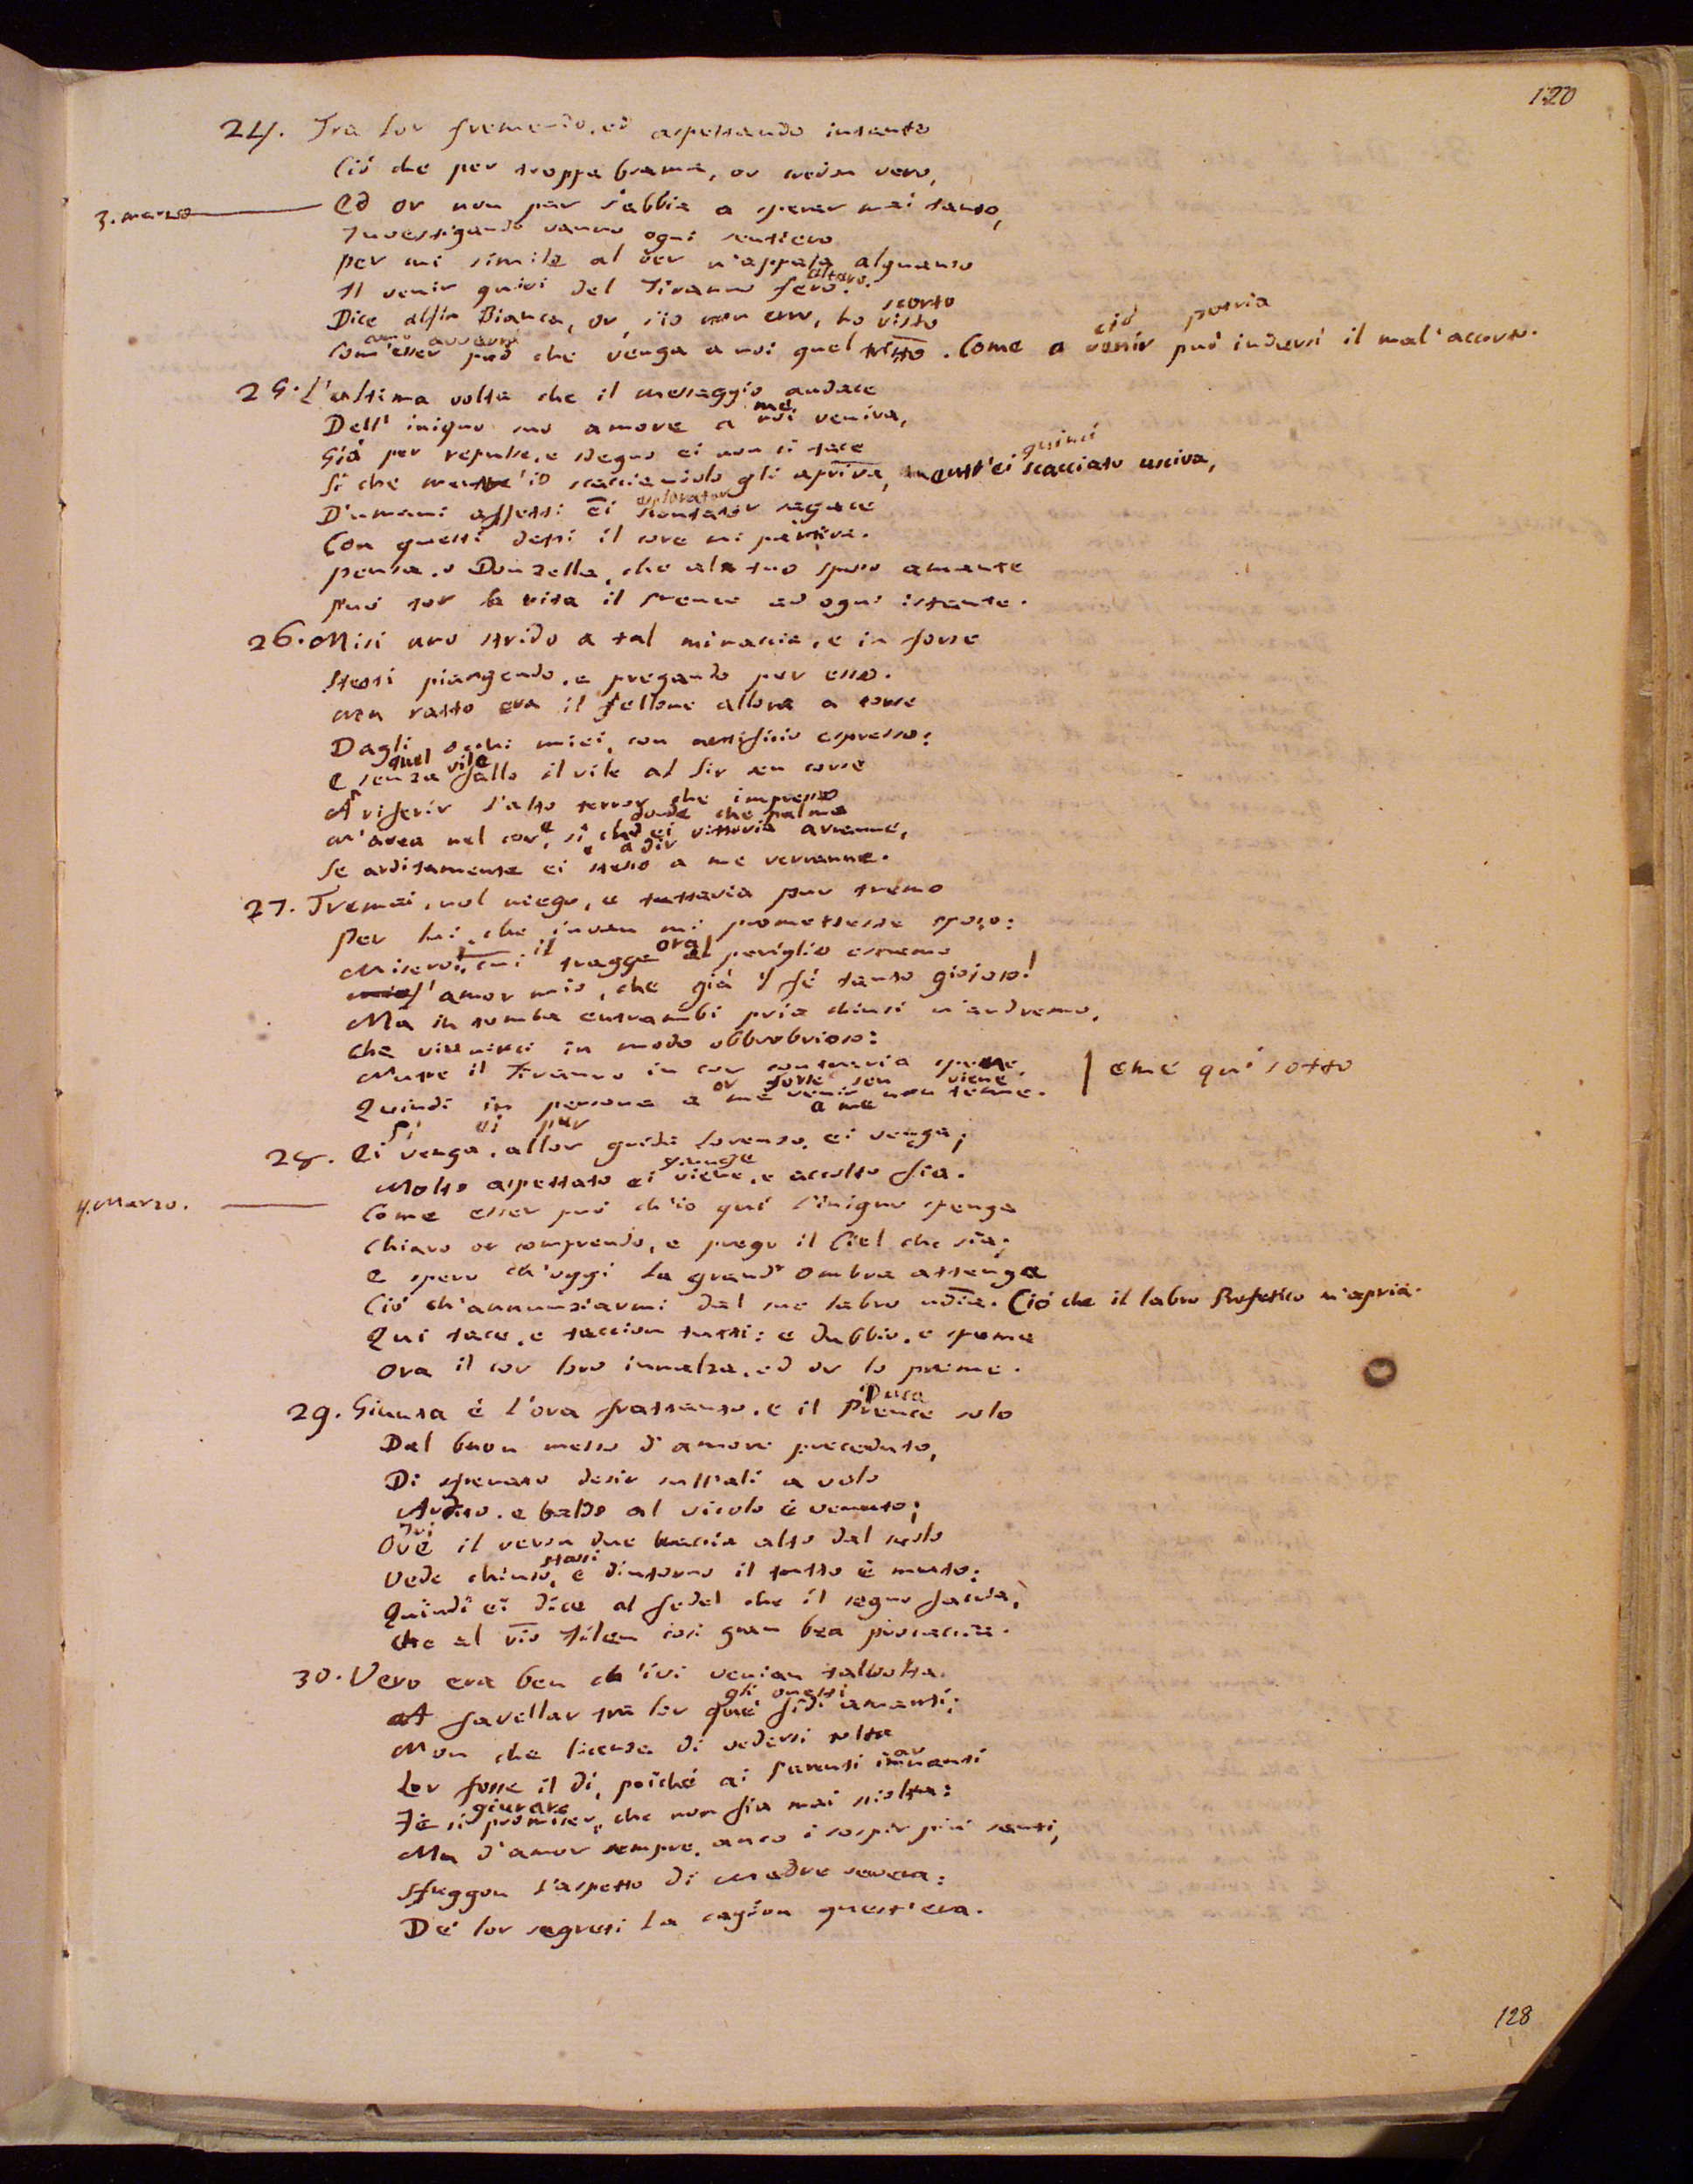 120
24. Tra lor fremendo, ed aspettando intanto
Ciò che per troppa brama, or credon vero,
3. marzo Ed or non par s'abbia a sperar mai tanto,
Investigando vanno ogni sentiero
per cui simile al ver n'appaja alquanto
altero.
Il venir quivi del Tiranno fero.
scorto
Dice alfin Bianca, or, s'io non erro, ho visto
ciò potria
com'esser può che venga a noi quel tristo. Come a venir può indursi il mal'accorto.
25. L'ultima volta che il messaggio audace
me
Dell' iniquo suo amore a noi veniva,
Già per repulse, e sdegno ei non si tace
quinci
Sì che mentr'io scacciandolo gli apriva, quest'ei scacciato usciva,
esplorator
D'umani affetti ei scrutator sagace
Con questi detti il core mi pativa.
pensa, o Donzella, che al tuo sposo amante
può tor la vita il prence ad ogni istante.
26. Misi uno strido a tal minaccia, e in forse
Stetti piangendo, e pregando per esso.
ma ratto era il fellone allora a torse
Dagli occhi miei, con artificio espresso:
quel vile
E senza fallo il vile al Sir sen corse
A riferir l'alto terror che impresso
donde che palma
M'avea nel core, sì ch'ei vittoria avranne,
a dir
Se arditamente ei stesso a me verranne.
27. Tremai, nol niego, e tuttavia pur tremo
Per lui, che invan mi promettesse sposo:
il ora
Misero, cui tragge al periglio estremo
l'amor mio, che già il fé tanto giojoso!
Ma in tomba entrambi pria chiusi n'andremo,
che in modo obbrobrioso:
Nutre il Tiranno in cor contraria speme, | eme qui sotto
or forse sen viene
Quindi in persona a me venir non teme.
a me
Sì ei pur
28. Ei venga, allor grida Lorenzo, ei venga;
giunge
Molto aspettato ei viene, e accolto fia.
4. Marzo. Come esser può ch'io quì l'iniquo spenga
Chiaro or comprendo, e prego il Ciel che sia;
E spero ch'oggi la grand' Ombra attenga
Ciò ch'annunziarmi dal suo labro udia. Ciò che il labro Profetico m'apria.
Qui tace, e taccion tutti: e dubbio, e speme
Ora il cor loro innalza, ed or lo preme.
29. Giunta è l'ora frattanto, e il Prence solo
Duca
Dal buon messo d'amore preceduto,
Di sfrenato desir sull'ali a volo
Ardito, e baldo al vicolo è venuto;
Ivi
Ove il veron due braccia alto dal suolo
stassi
Vede chiuso, e dintorno il tutto è muto:
Quindi ei dice al fedel che il segno faccia,
Che al rio Silen così gran bea procaccia.
30. Vero era ben ch'ivi venian talvolta
gli onesti
A favellar tra lor que' fidi amanti;
Non che licenza di vedersi tolta
Lor fosse il dì, poiché ai Parenti innanti
giurare
Fè si promiser, che non fia mai sciolta:
Ma d'amor sempre, anco i sospir più santi,
Sfuggon l'aspetto di Madre severa:
De' lor segreti la cagion quest'era.
128